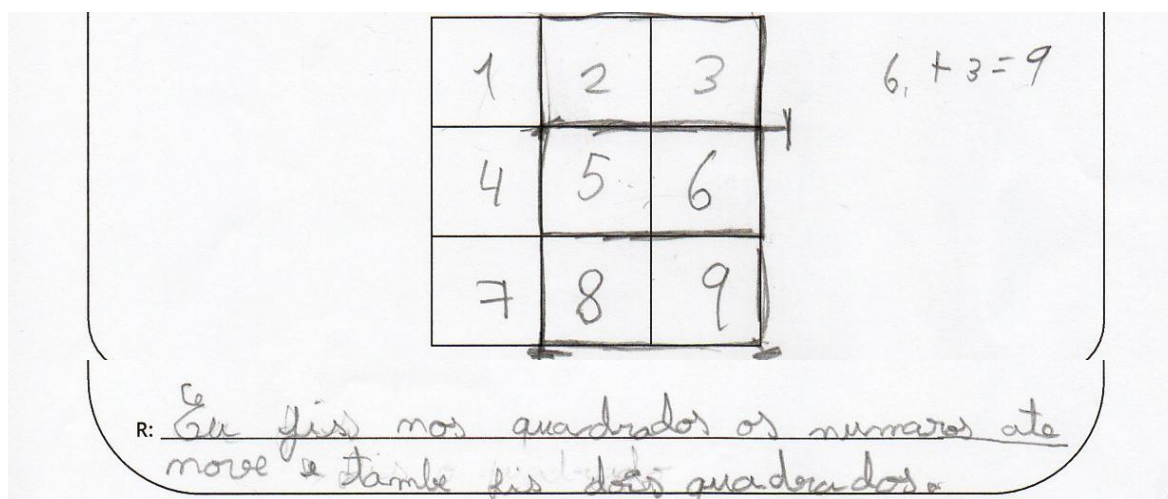 1 2 3
6 + 3 = 9
4 5 6
7 8 9
R: Eu fis nos quadrados os numaros ate
nove e tambe fis dois quadrados.